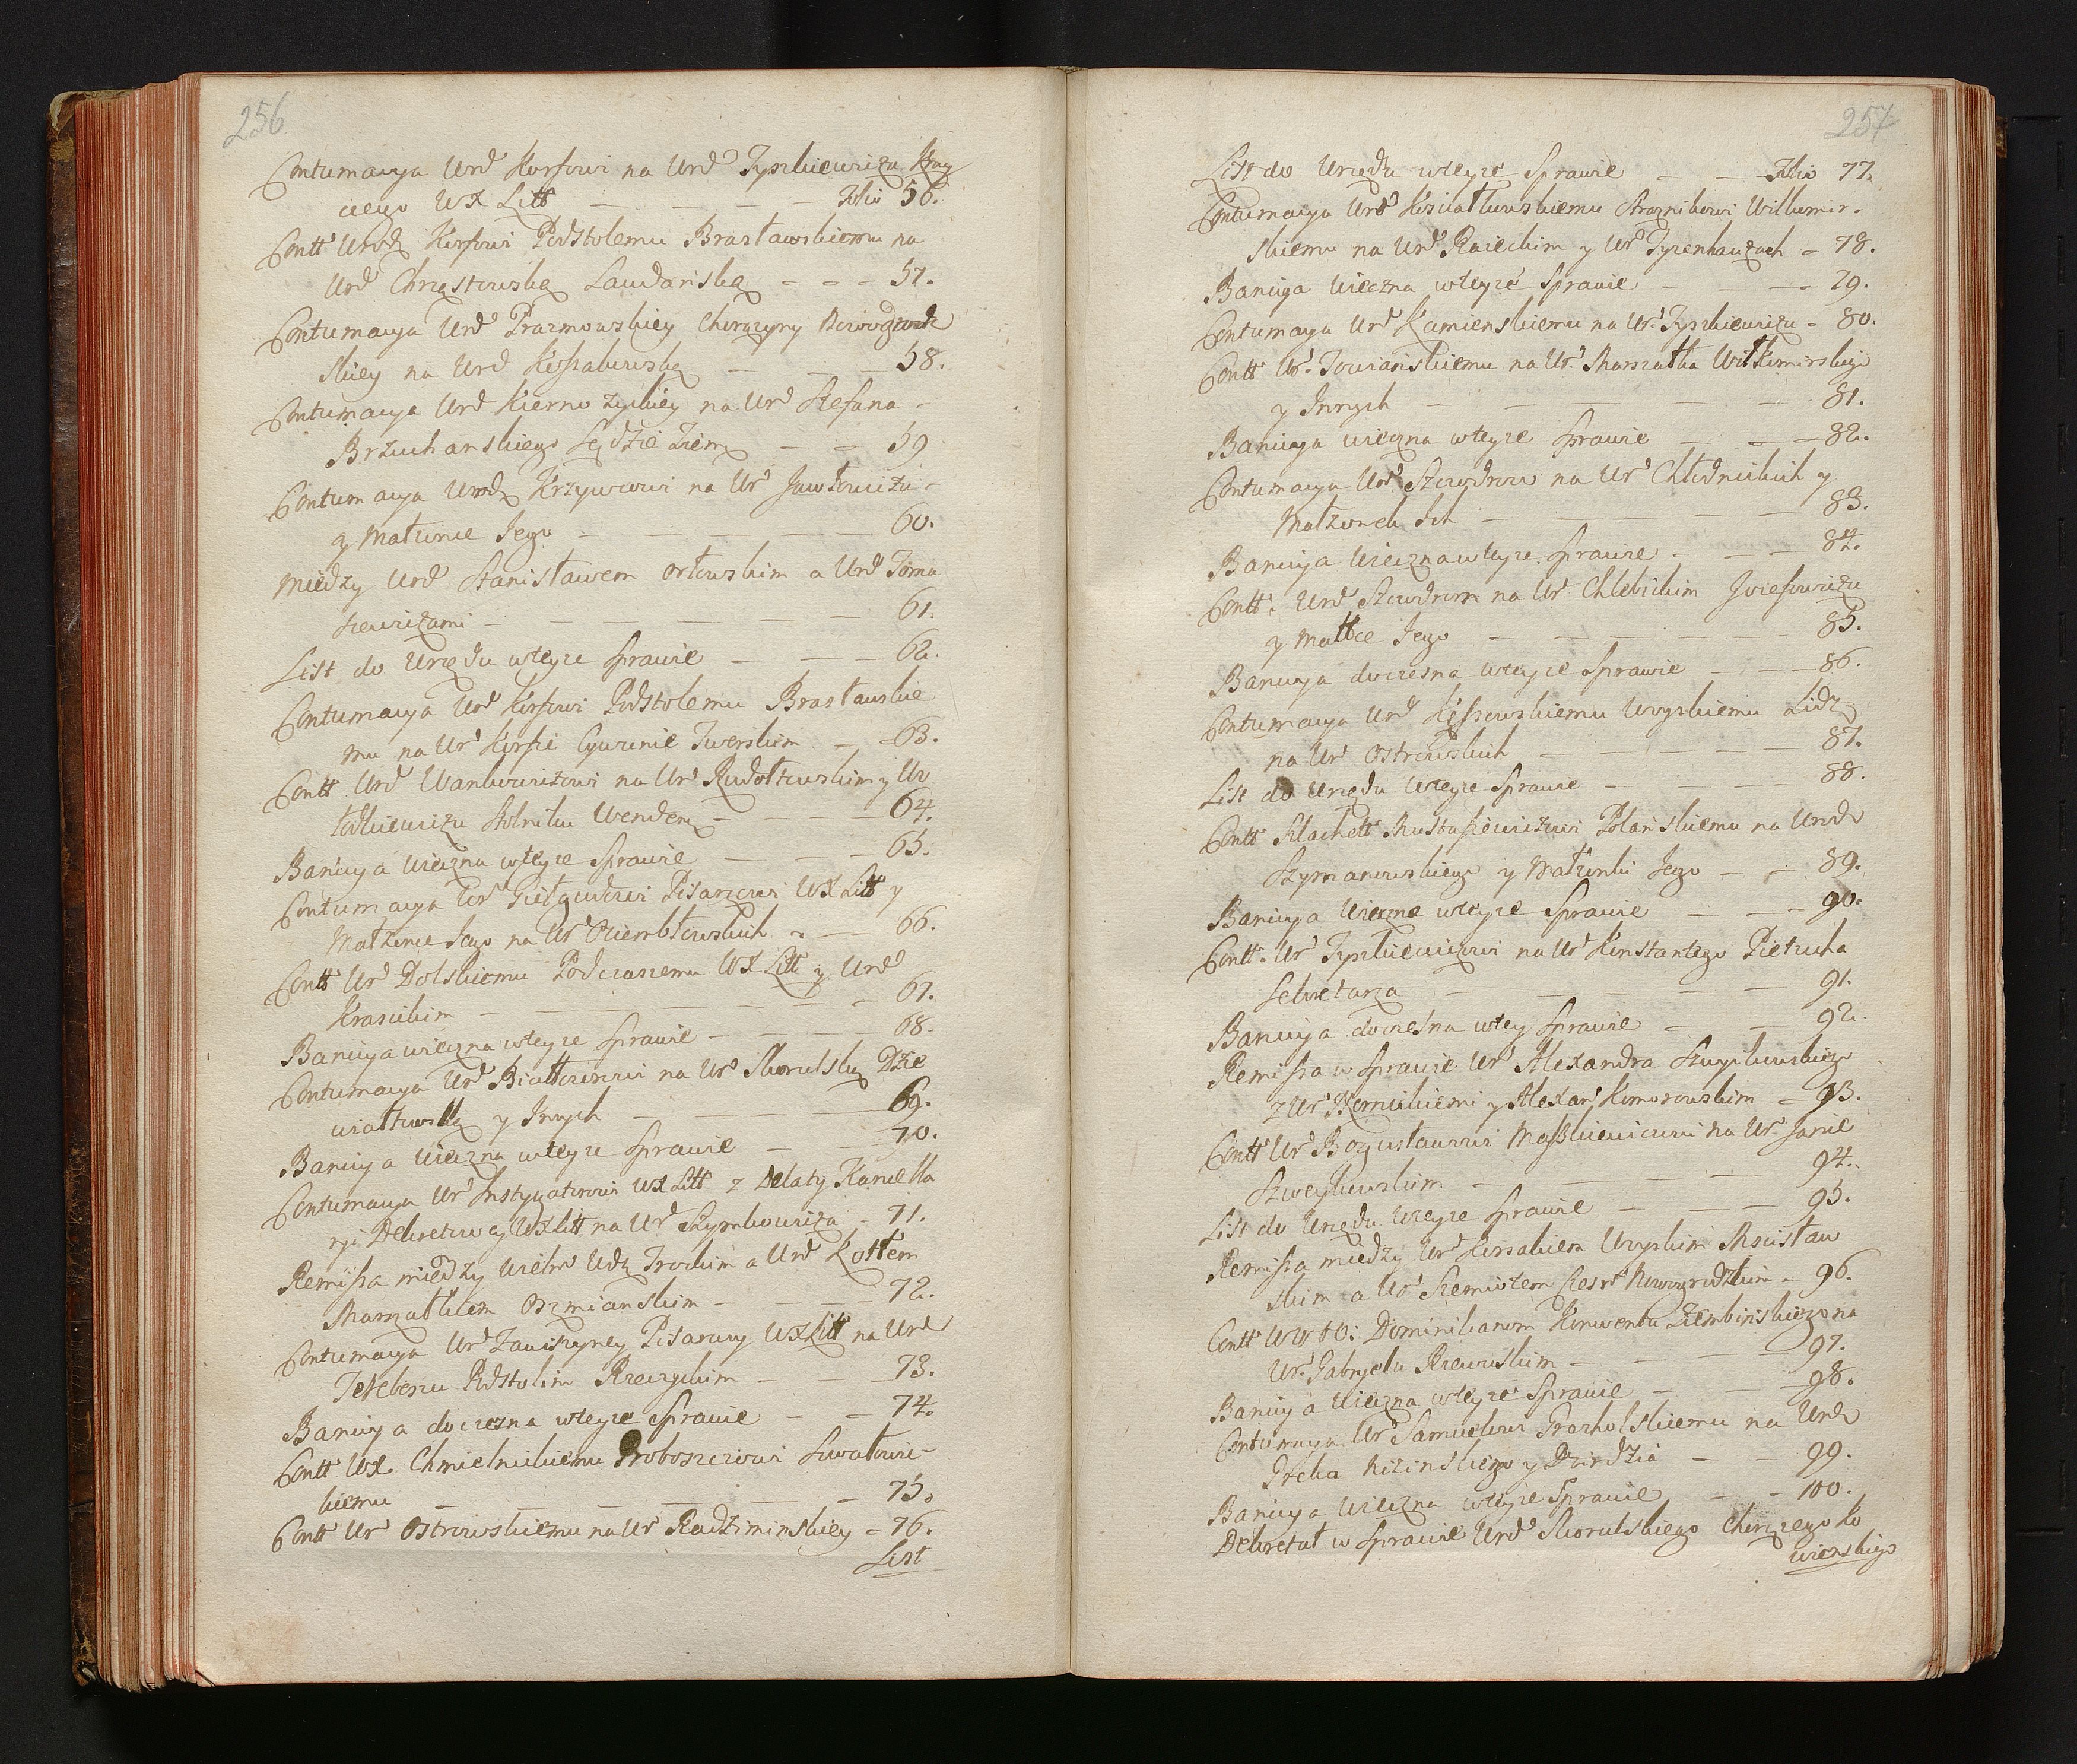 256
Contumacya Urd Korsowi na Urd Tyszkiewiczu
ciego WX Litt — — — — Folio 56.
Contt Urodz Korsowi Podstolemu Brasławskiemu na
Urd Chrząstowską Laudańską - - - 57.
Contumacya Urd Prazmowskiey Chorążyny Nowogrodz
skiey na Urd Kossakowską — — — 58.
Contumacya Urd Kiernozyckiey na Urd Stefana -
Brzuchanskiego Sędzie Ziem — — 59
Contumacya Urodz Krzywcowi na Ur Jawłowiczu -
y Małżonce Jego — — — — 60.
Między Urd Stanisławem Orłowskim a Urd Toma
szewiczami — — — — — 61.
List do Urzędu wteyze Sprawie — — — 62.
Contumacya Urd Korsowi Podstolemu Brasławskie
mu na Ur Korsie Cywunie Twerskim — — 63.
Contt Urd Wankowiczowi na Ur Rudołtowskim y Ur
todkiewiczu Stolniku Wendeń — — — 64.
Banicya Wieczna wteyze Sprawie — — — 65.
Contumacya Ur Giełgudowi Pisarzowi WX Litt y
Małżonce Jego na Ur Oziembłowskich - — 66.
Contt Ur Dolskiemu Podczaszemu WX Litt y Urd
Krasickim — — — — — — 67.
Banicya wieczna wteyze Sprawie — — — 68.
Contumacya Urd Białłozorowi na Ur Skorulską Dzie
wiałtowską y Jnnych — — — — 69.
Banicya Wieczna wteyze Sprawie — — — 70.
Contumacya Ur Jnstygatorowi WX Litt z Delaty Kancella
ryi Dekretowey WXLitt na Urd Szymkowicza - 71.
Remissa między Wielm Wdą Trockim a Urd Kottem
Marszałkiem Oszmianskim — — — 72.
Contumacya Ur Zawiszyney Pisarzowy WXLitt na Urd
Jelebesu Podstolim Rzeczyckim — — — 73.
Banicya doczesna wteyze Sprawie — — 74.
Contt WX. Chmielnickiemu Proboszczowi Swatowic-
kiemu — — — — — — 75.
Contt Ur Ostrowskiemu na Ur Radziminskiey - 76.
List
257
List do Urzędu wteyze Sprawie — — Folio 77.
Contumacya Urd Kosciałkowskiemu Straznikowi Wiłkomir-
skiemu na Urd Raieckim y Ur Tyzenhauzach - 78.
Banicya Wieczna wteyze Sprawie — — — 79.
Contumacya Urd Kamienskiemu na Ur Tyszkiewiczu - 80.
Contt Ur Towiańskiemu na Ur. Marszałka Wiłkomirskiego
y Jnnych — — — — — 81.
Banicya wieczna wteyze Sprawie — — — 82.
Contumacya Urd Szczodrow na Ur Chłodnickich y
Małżonek Jch — — — — — 83.
Banicya Wieczna wteyze Sprawie - — — 84.
Contt. Urd Szczodrom na Ur Chlebickim Jozefowiczu
y Mattce Jego — — — — — 85.
Banicya doczesna wteyze Sprawie — — — 86.
Contumacya Urd Kossowskiemu Woyskiemu Lidz
na Ur Ostrowskich — — — — — 87.
List do Urzędu Wteyze Sprawie — — — 88.
Contt Szlachett Mustafiewiczowi Polańskiemu na Urodz
Szymanowskiego y Małżonki Jego - - 89.
Banicya Wieczna wteyze Sprawie — — — 90.
Contt. Ur Tyszkiewiczowi na Ur Konstantego Pietucha
Sekretarza — — — — — 91.
Banicya doczesna wtey Sprawie — — — 92.
Remissa w Sprawie Ur Alexandra Szwykowskiego
z Ur Komickiemi y Alexan Komorowskim — 93.
Contt Ur Bogusławowi Maszkiewiczowi na Ur. Janie
Szweykowskim — — — — — 94.
List do Urzędu Wteyze Sprawie — — — 95.
Remissa miedzy Urd Kossakiem Woyskim Mscisław
skim a Ur Siemiotem Czesn Nowogrodzkim - 96.
Contt WW OO: Dominikanom Konwentu Ziembinskiego na
Ur. Gabryelu Rzewuskim — — — 97.
Banicya Wieczna wteyze Sprawie — — — 98.
Contumacya Ur Samuelowi Grocholskiemu na Urdz
Greka Nizinskiego y Dziedzia — — 99.
Banicya Wieczna wteyze Sprawie — - 100.
Dekretał w Sprawie Urd Skorulskiego Chorążego Ko
wienskiego